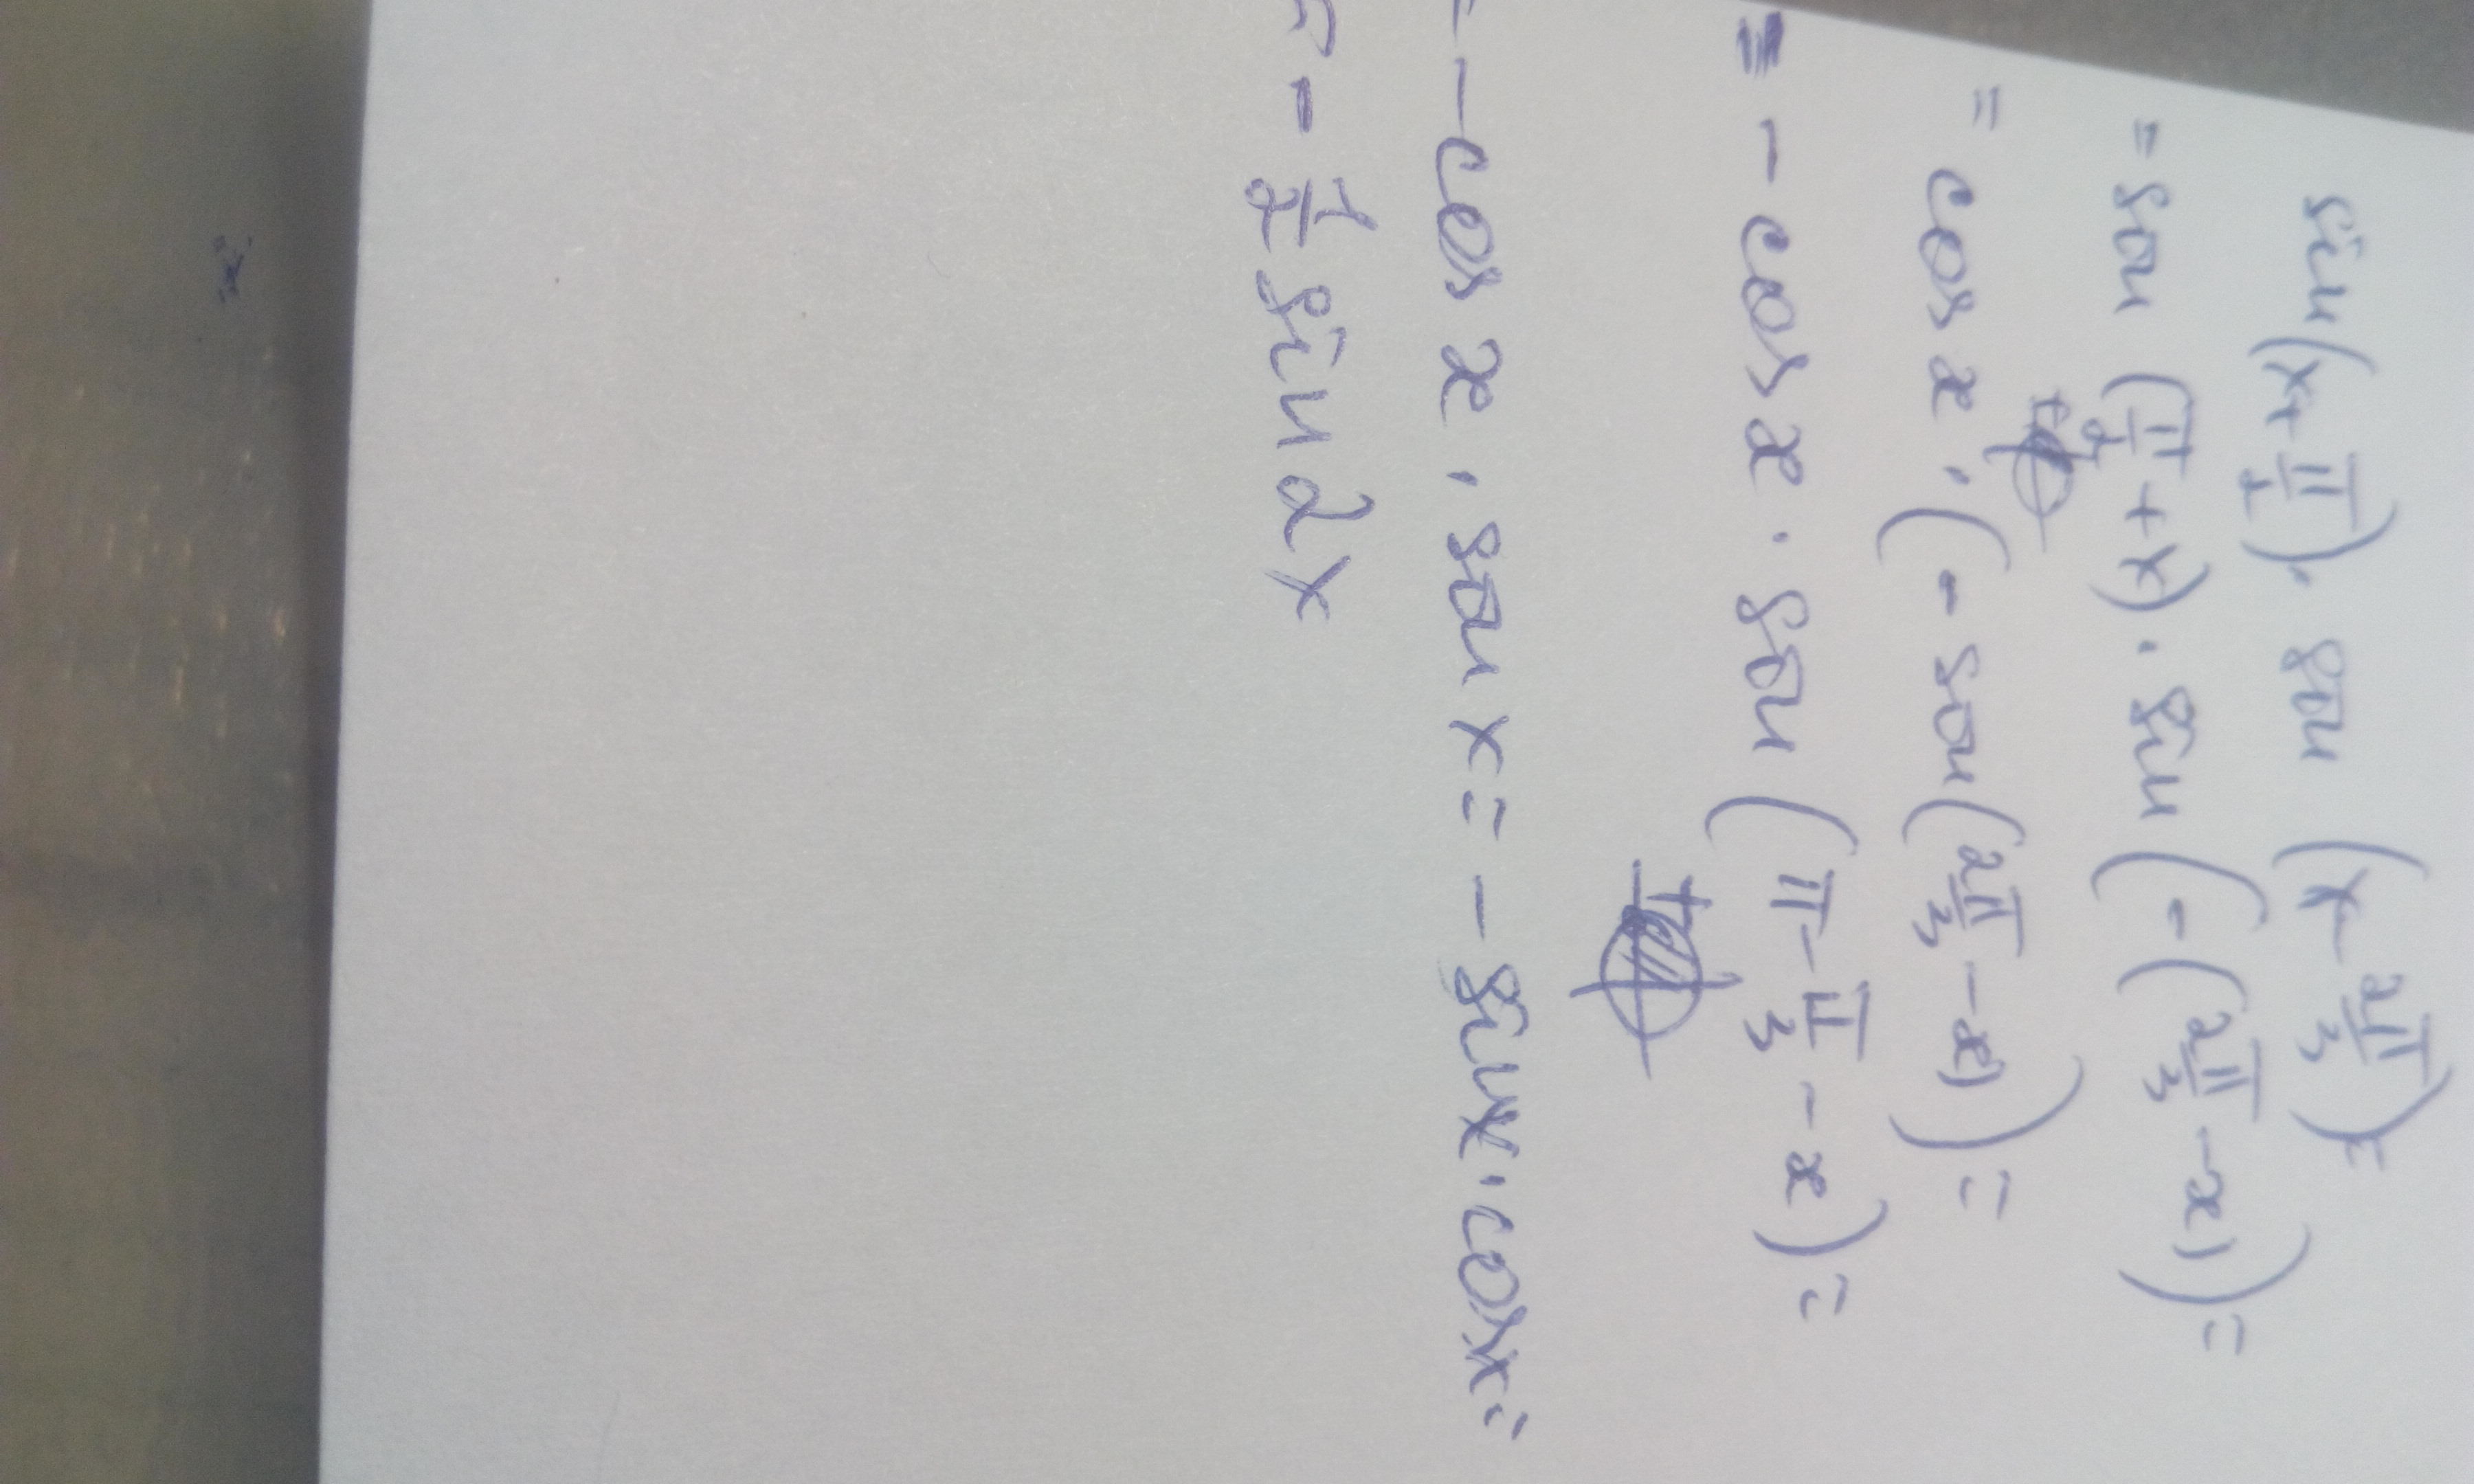 sin(x+π/2)·sin(x-2π/3)=
=sin(π/2+x)·sin(-(2π/3-x))=
=cosx·(-sin(2π/3-x))=
=-cosx·sin(π-π/3-x)=
=-cosx·sinx=-sinx·cosx=
=-1/2sin2x